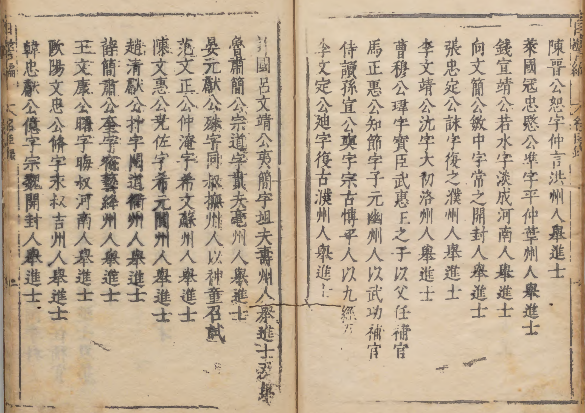 陳晉公恕字仲言洪州人舉進士
萊國寇忠愍公準字平仲華州人舉進士
錢宣靖公若水字淡成河南人舉進士
向文簡公敏中字常之開封人舉進士
張忠定公詠字復之濮州人舉進士
李文靖公沆字太初洛州人舉進士
曹穆公瑋字寶臣武惠王之子以父任補官
馬正惠公知節字子元幽州人以武功補官
侍讀孫宣公奭字宗古博平人以九經
李文定公迪字復古濮州人舉進士
國呂文靖公夷簡字坦夫壽州人舉進士
魯肅簡公宗道字貫夫亳州人舉進士
晏元獻公殊字同叔撫州人以神童召試
范文正公仲淹字希文蘇州人舉進士
陳文惠公堯佐字希元閬州人舉進士
趙清獻公抃字閱道衢州人舉進士
薛簡肅公奎字宿藝絳州人舉進士
王文康公曙字晦叔河南人舉進士
歐陽文忠公脩字永叔吉州人舉進士
韓忠獻公億字宗魏開封人舉進士